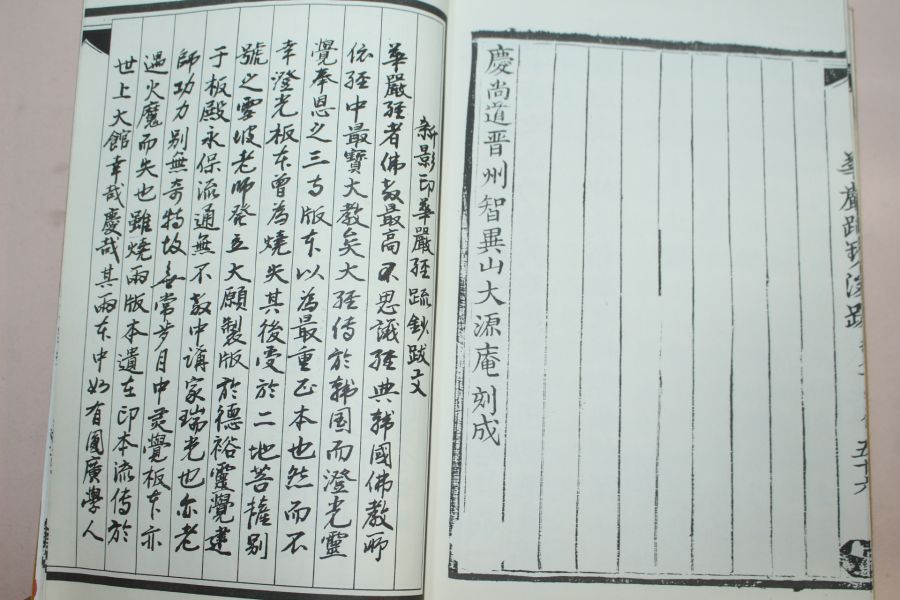 慶尚道晋州智異山大源庵刻成
新影印華嚴経疏鈔跋文
華嚴経者佛教最高不思議経典韩國佛教所
依経中最寶大教矣大経傳於韩国而澄光靈
覺奉恩之三寺版本以為最重正本也然而不
幸澄光板本曾為燒失其後受於二地菩薩别
號之雪坡老師發立大願製版於德裕靈覺建
于板殿永保流通無不教中講家瑞光也亦老
師功力别無奇特故無常岁月中灵覺板本亦
遇火魔而失也雖燒両版本遺在印本流傳於
世上大館幸哉慶哉其兩本中有廣學人